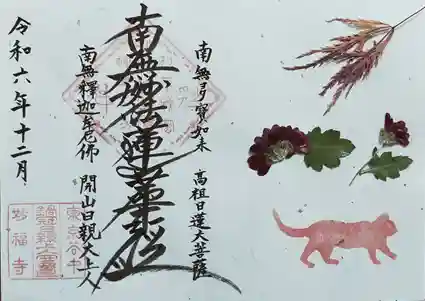 南無多寳如来 高祖日蓮大菩薩
南無妙法蓮華経
南無釋迦牟尼佛 開山日親大上人
令和六年十二月
東京谷中
妙福寺